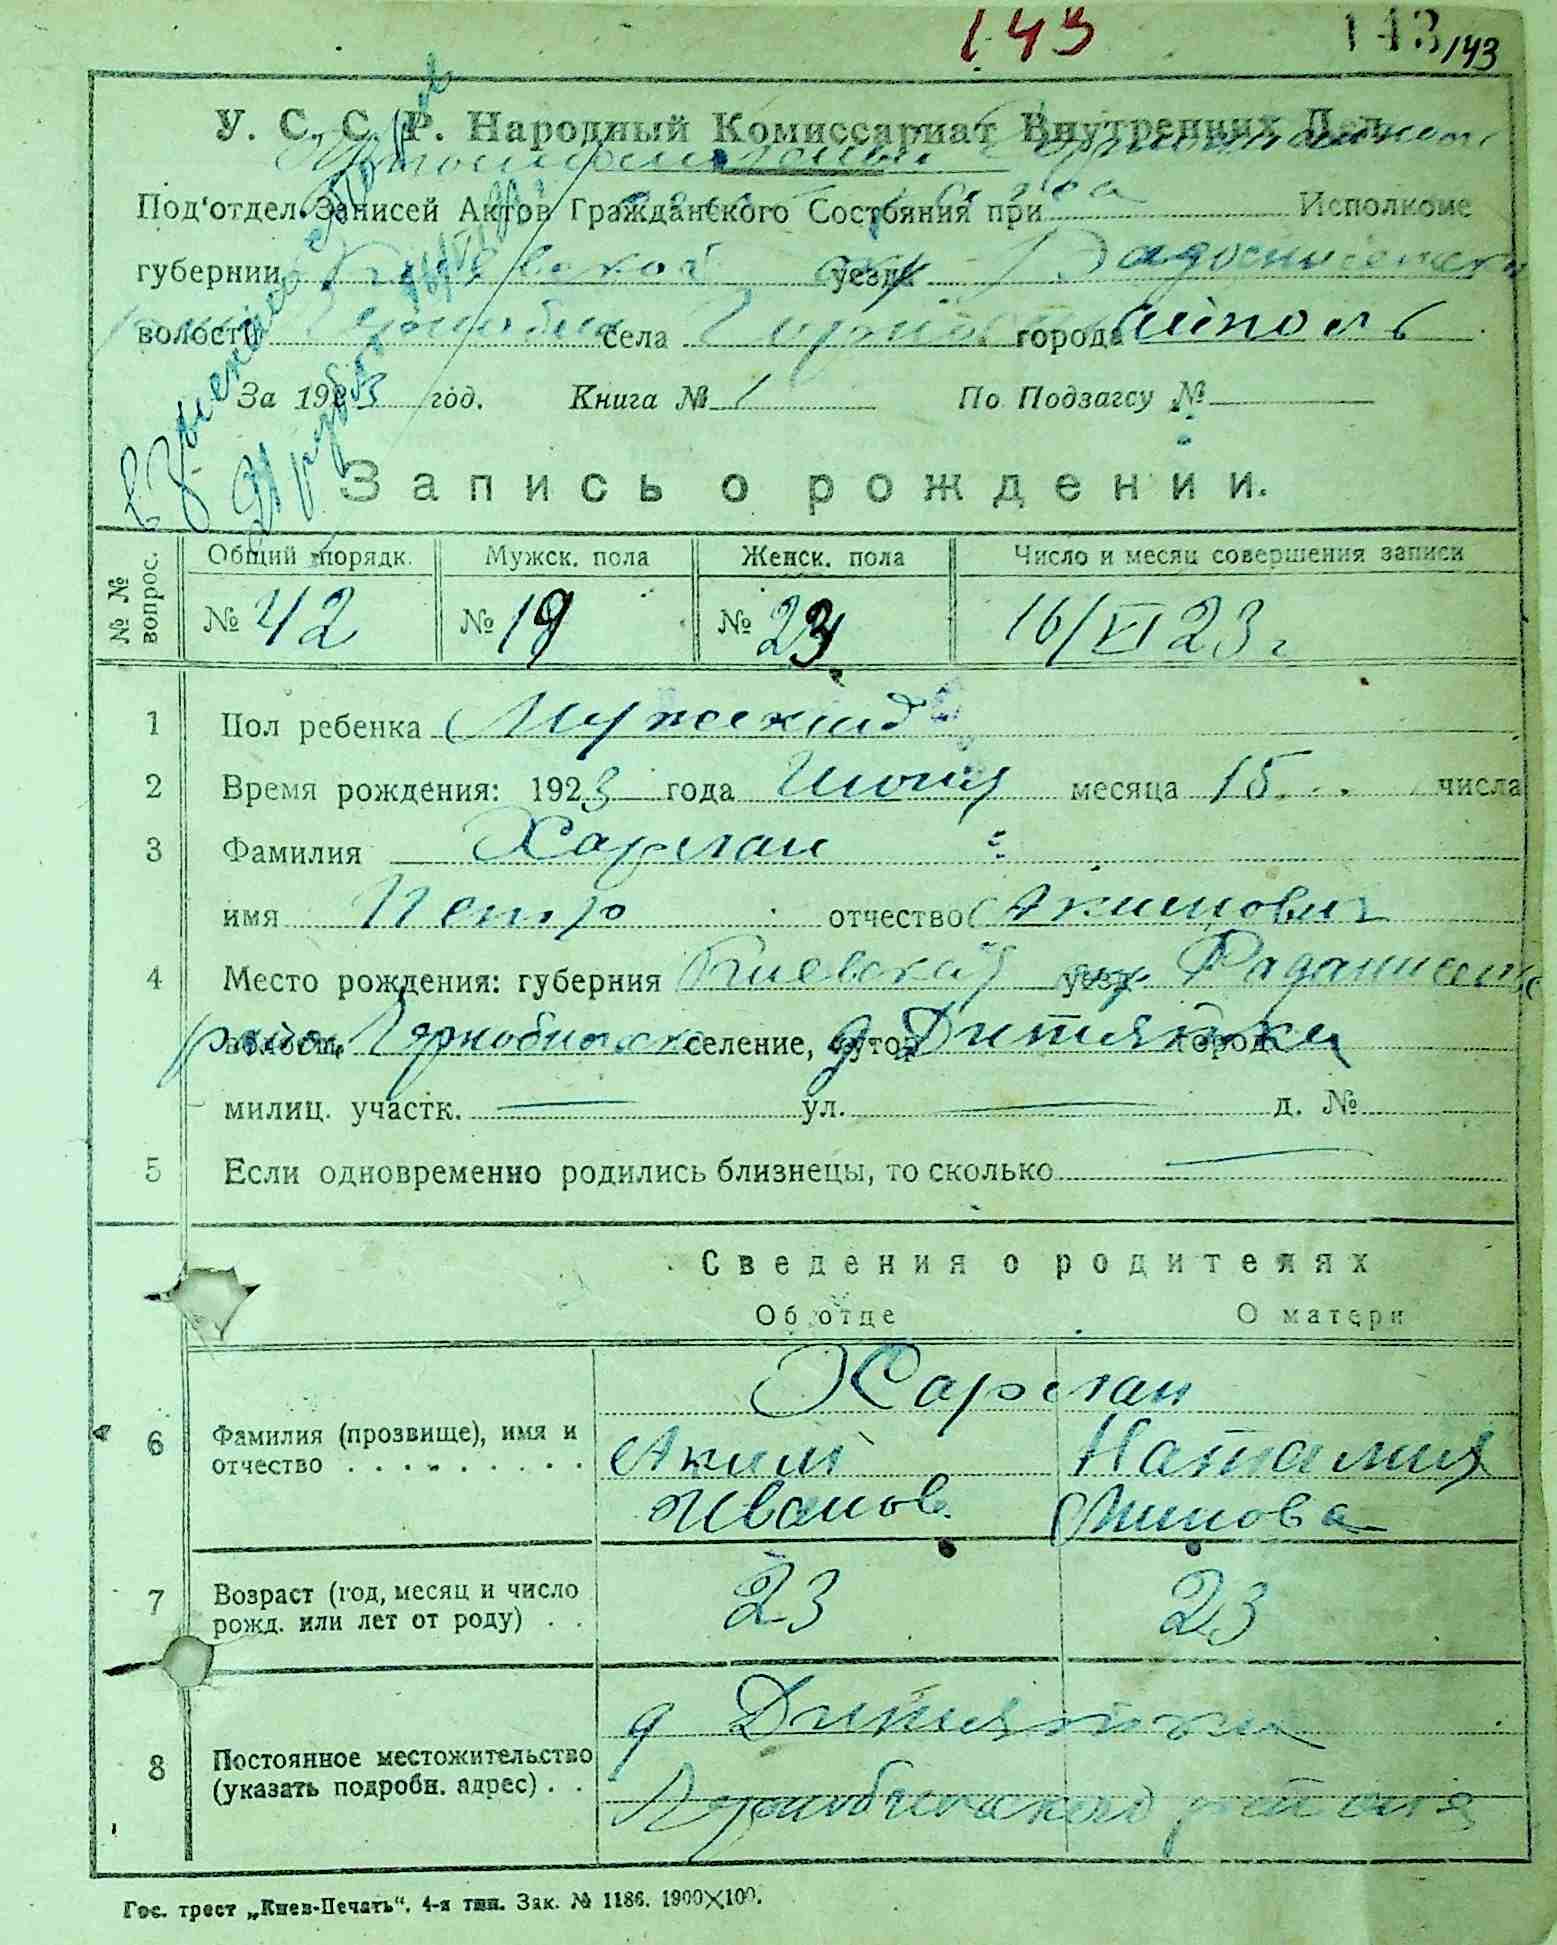 143 143 143
У. С. С. Р. Народный Комиссариат Внутренних Дел.
Под'отдел Записей Актов Гражданского Состояния при Исполкоме
губернии Киевской уезда окр
волости села города
За 1923 год. Книга № 1 По Подзагсу №
Запись о рождении.
№ № вопрос. Общий порядк. Мужск. пола Женск. пола Число и месяц совершения записи
№ 42 № 19 № 23 16/VI 23 г
1 Пол ребенка Мужский
2 Время рождения: 1923 года Июня месяца 15 числа
3 Фамилия Харлан
имя Петр отчество Акимович
4 Место рождения: губерния Киевская уезд окр.
волость район селение, хутор д Дитятки город
милиц. участк. — ул. — д. №
5 Если одновременно родились близнецы, то сколько —
Сведения о родителях
Об отце О матери
Харлан
6 Фамилия (прозвище), имя и отчество Аким Наталия
Иванов. Минова
7 Возраст (год, месяц и число рожд. или лет от роду) 23 23
д Дитятки
8 Постоянное местожительство (указать подробн. адрес) Чернобыльского района
Гос. трест „Киев-Печать". 4-я тип. Зак. № 1186. 1900×100.